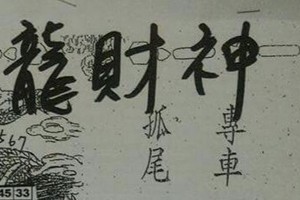 龍財神
專車
孤尾
567
45 33